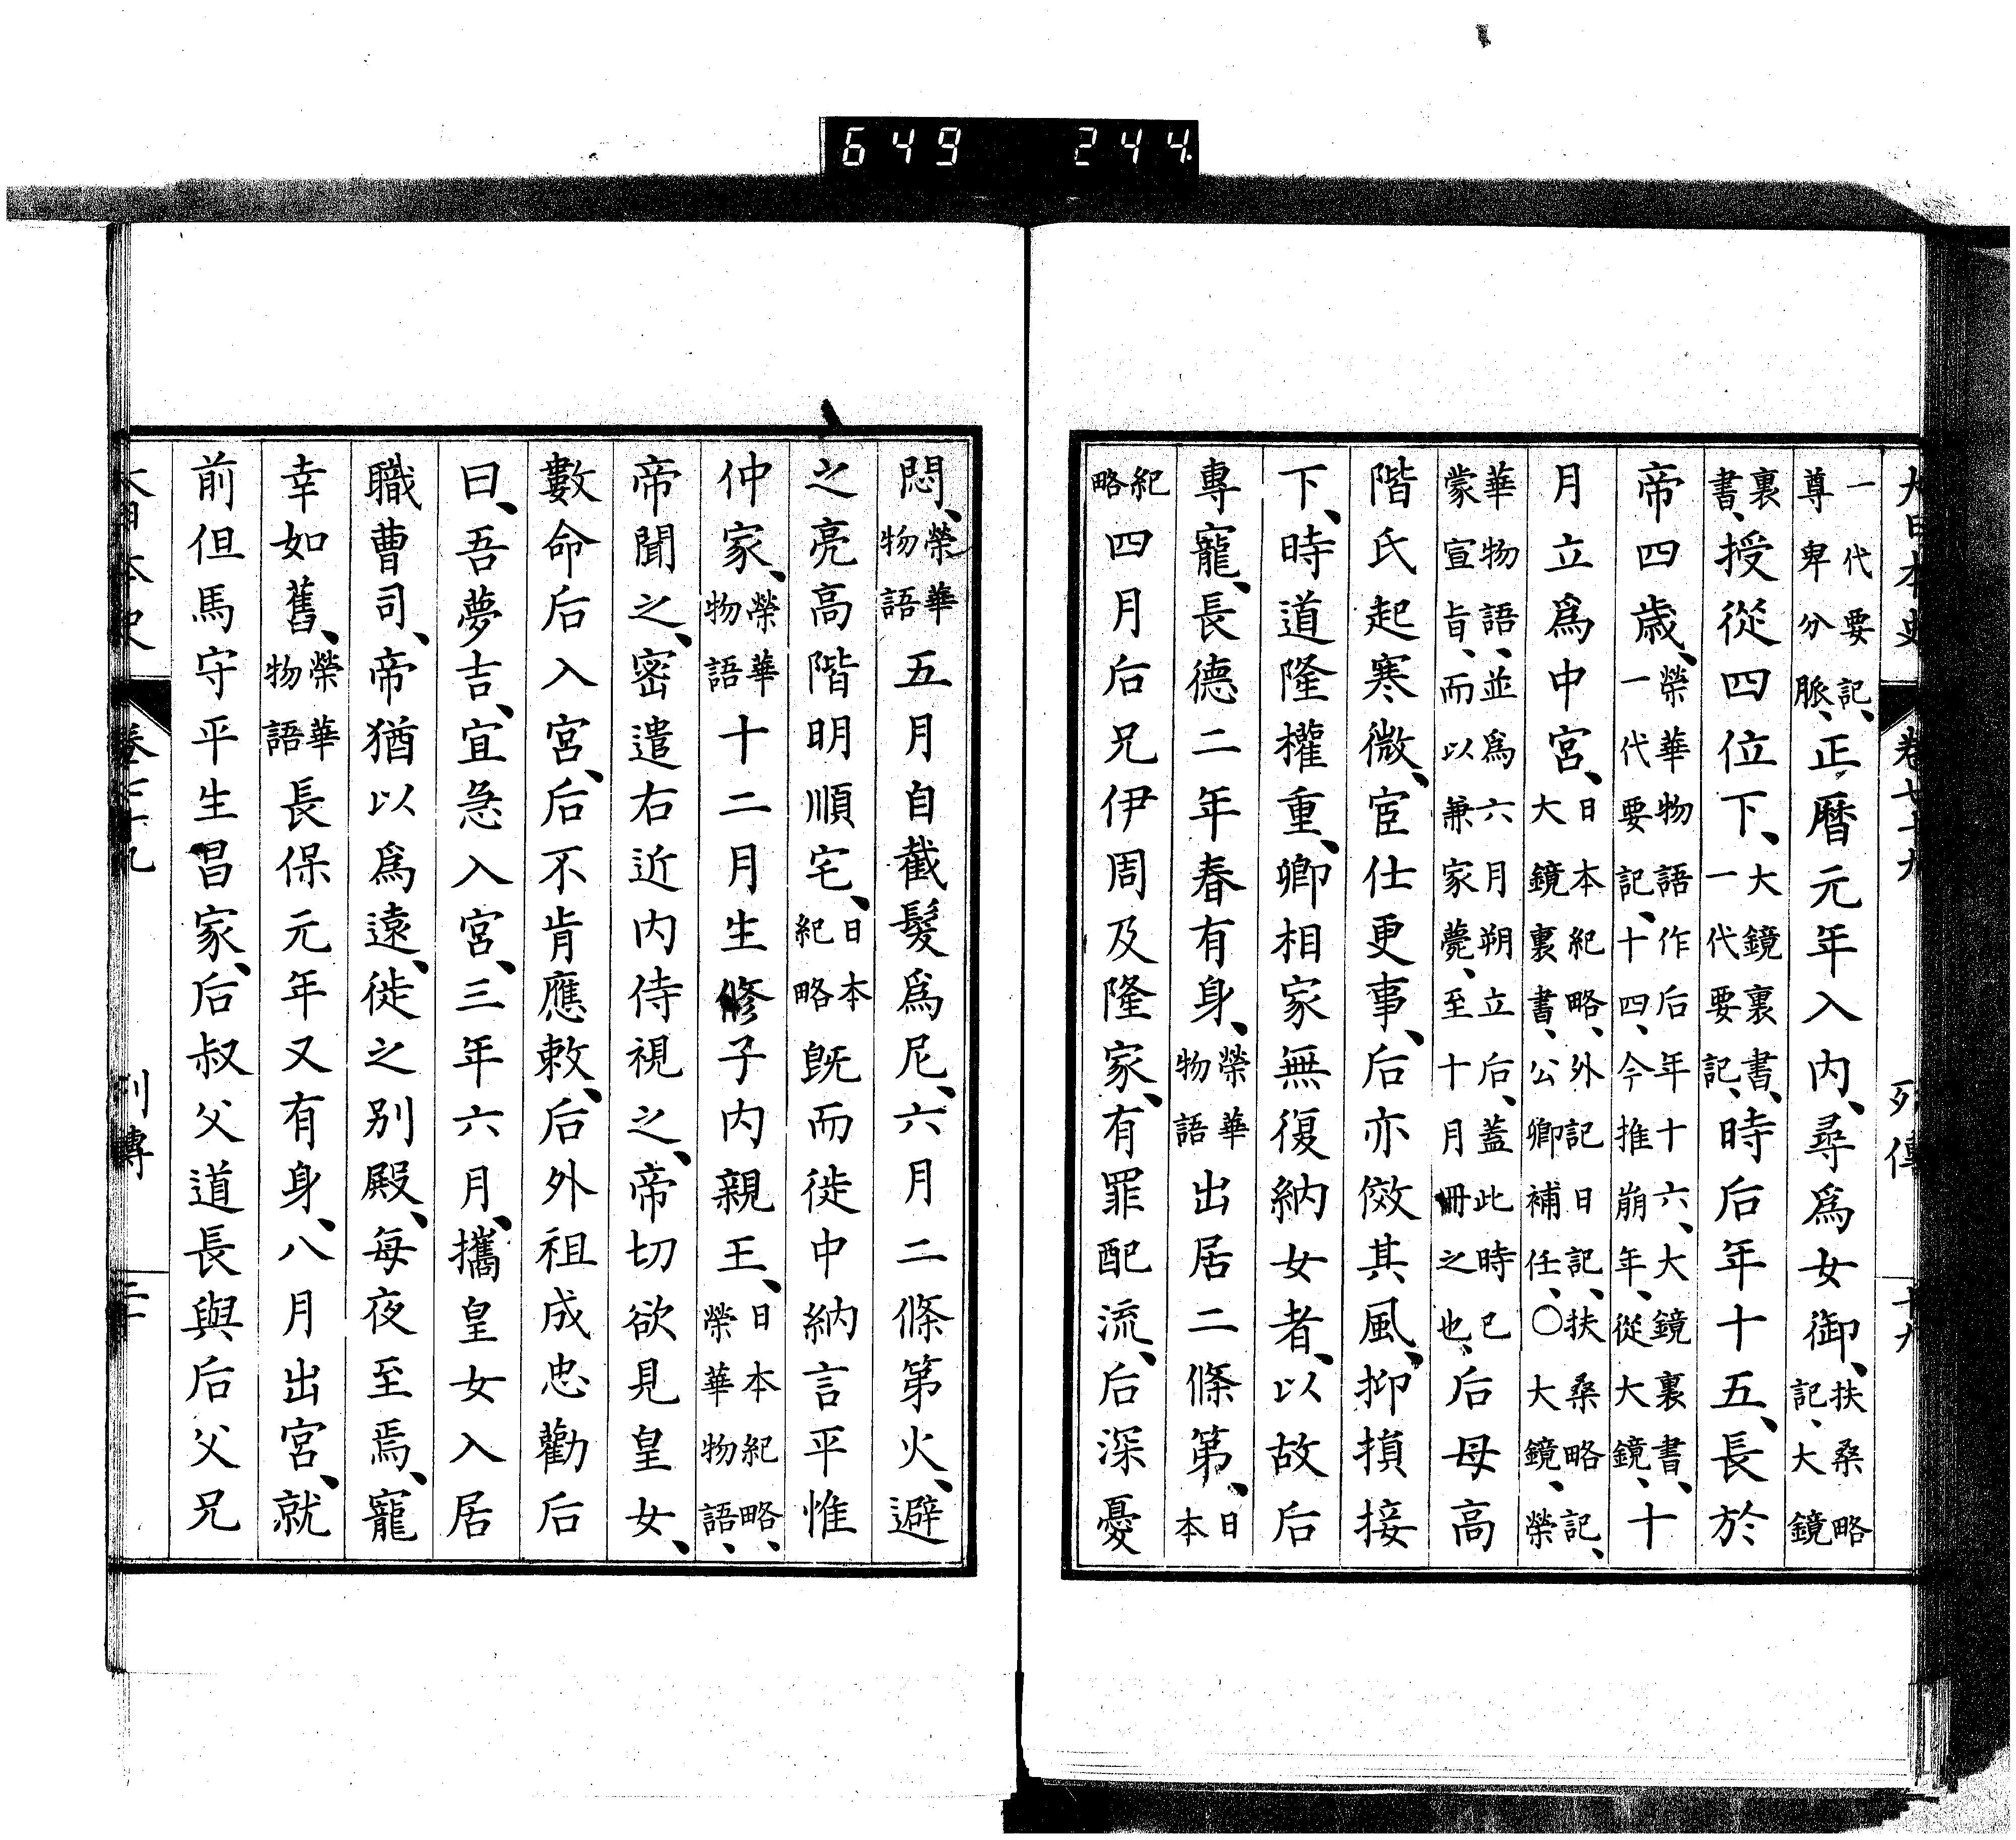 649 244
大日本史 卷七十九 列傳 十九
一代要記、尊卑分脈、正曆元年入内、尋爲女御、扶桑略記、大鏡
裏書、授從四位下、大鏡裏書、一代要記、時后年十五、長於
帝四歳、榮華物語作后年十六、大鏡裏書、一代要記、十四、今推崩年、從大鏡、十
月立爲中宮、日本紀略、外記日記、扶桑略記、大鏡裏書、公卿補任、〇大鏡、榮
華物語、並爲六月朔立后、蓋此時已蒙宣旨、而以兼家薨、至十月冊之也、后母高
階氏起寒微、宦仕更事、后亦傚其風、抑損接
下、時道隆權重、卿相家無復納女者、以故后
專寵、長德二年春有身、榮華物語出居二條第、日本
紀略四月后兄伊周及隆家、有罪配流、后深憂
悶、榮華物語五月自截髮爲尼、六月二條第火、避
之亮高階明順宅、日本紀略既而徙中納言平惟
仲家、榮華物語十二月生脩子内親王、日本紀略、榮華物語、
帝聞之、密遣右近内侍視之、帝切欲見皇女、
數命后入宮、后不肯應敕、后外祖成忠勸后
曰、吾夢吉、宜急入宮、三年六月、攜皇女入居
職曹司、帝猶以爲遠、徙之別殿、每夜至焉、寵
幸如舊、榮華物語長保元年又有身、八月出宮、就
前但馬守平生昌家、后叔父道長與后父兄
大日本史 卷七十九 列傳 二十